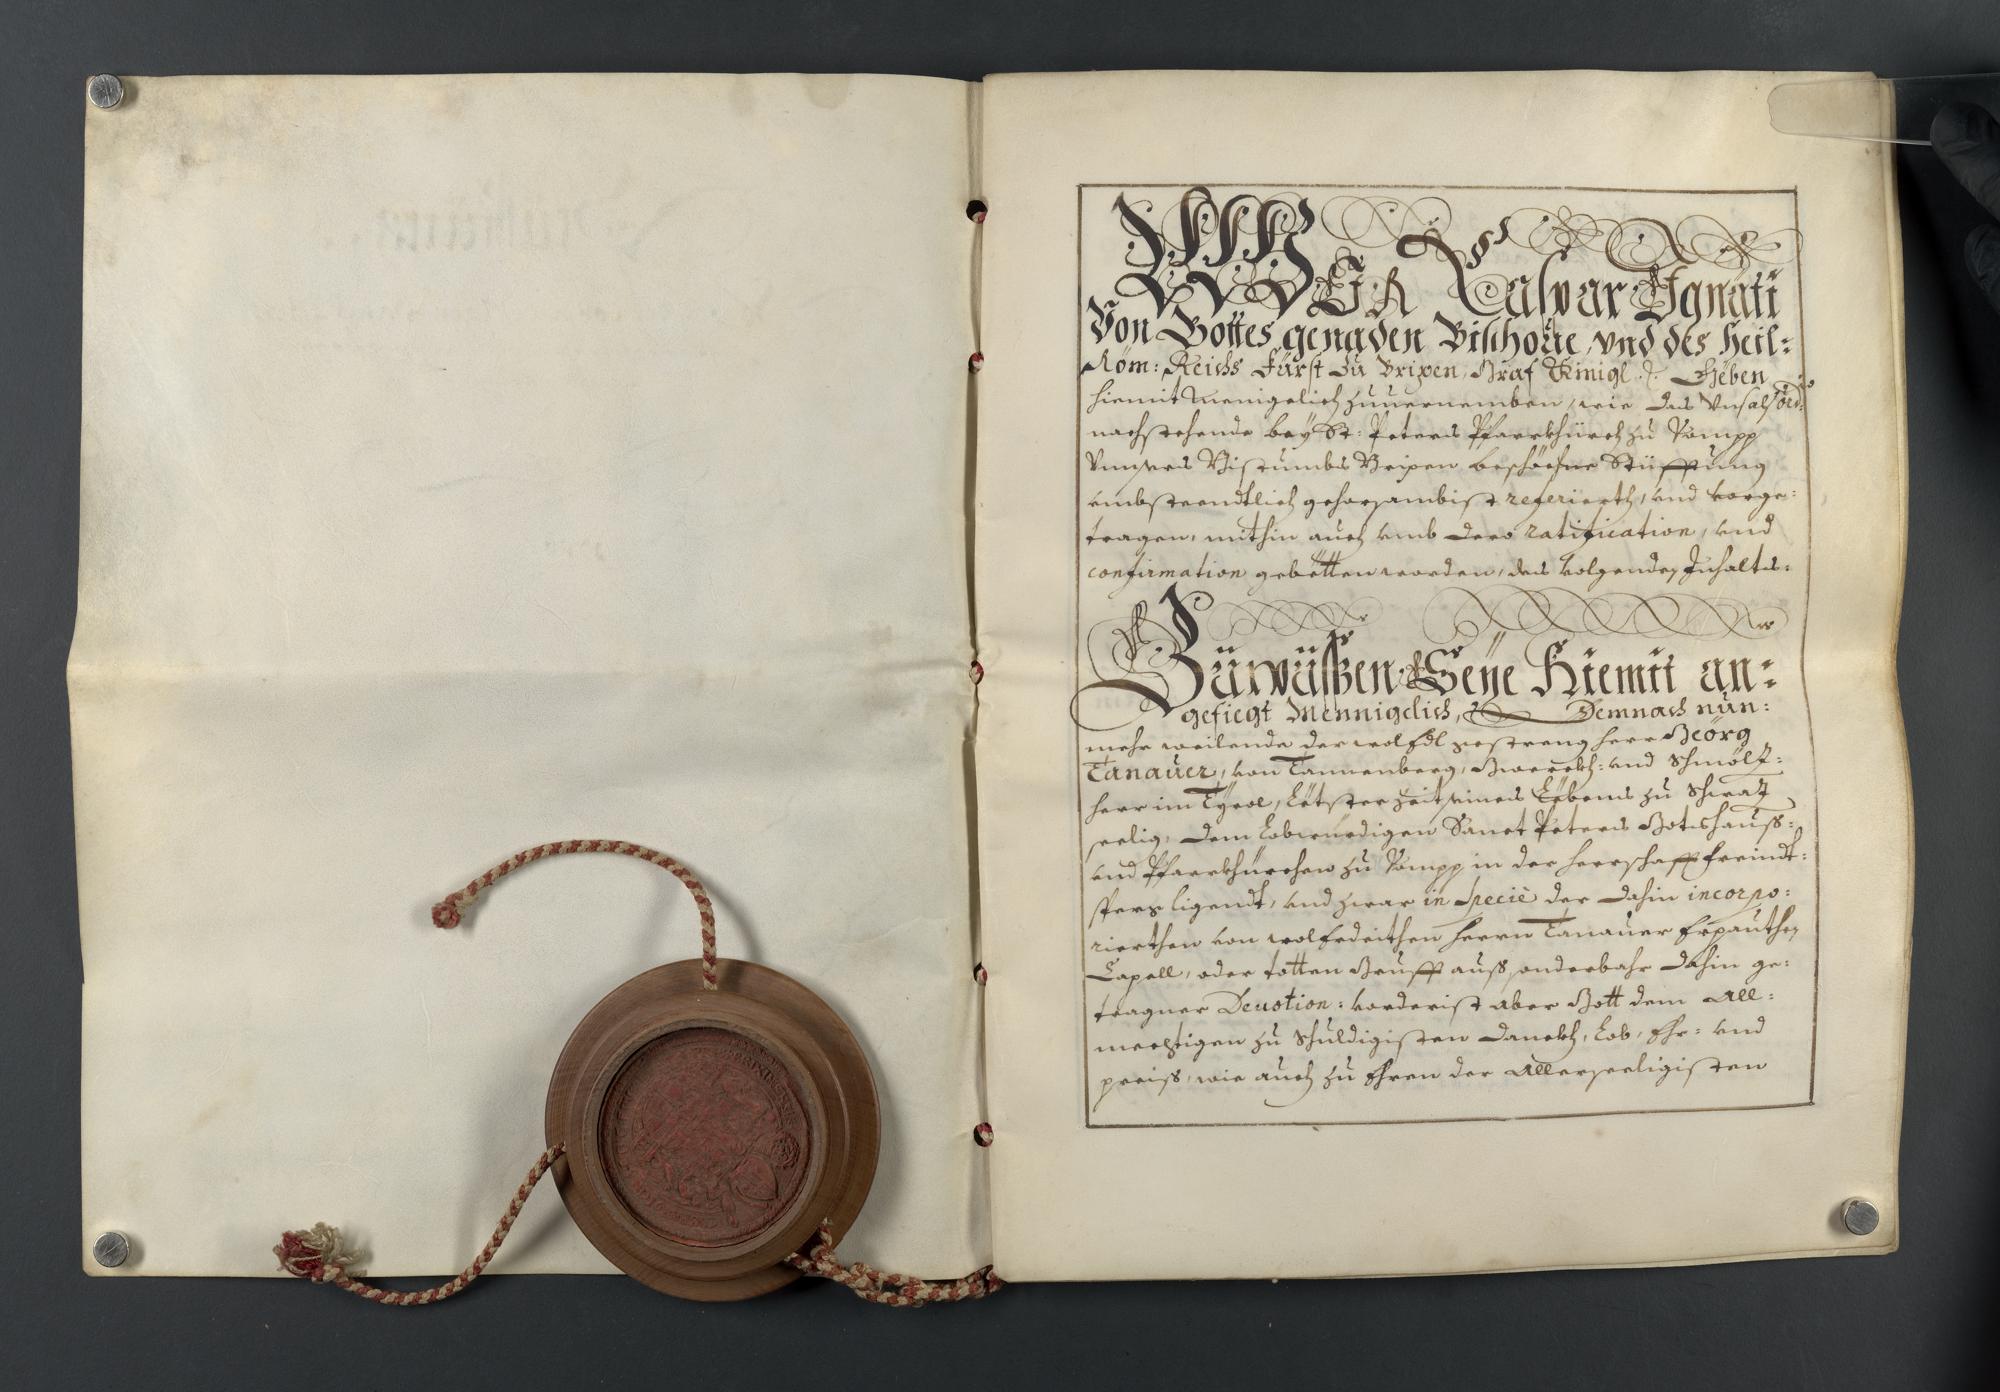 WIR Caspar Ignati
Von Gottes genaden Bischoue, vnd des Heil:
Röm: Reichs Fürst zu Brixen, Graf Künigl &c. Geben
hiemit menigelich zuuernemben, wie das Vnß alß ord:
nachstehende bey St: Peters Pfarrkhürch zu Vompp
Vnnsers Bistumbs Brixen beschechne Stüfftung
vmbstendtlich gehorsambist referierth, vnd vorge:
tragen, mithin auch vmb dero ratification, vnd
confirmation gebëtten worden, des volgenden Inhalts:
Zuwüssen Seye Hiemit an:
gefiegt Mennigelich, Demnach nun:
mehr weilende der wol Edl gestreng herr Georg
Tanauer, von Tannenberg, Gwerckh: vnd Schmölz:
herr im Tyrol, Lëtster Zeit seines Lëbens zu Schwaz
seelig, dem Lobwürdigen Sanct Peters Gotshauß:
vnd Pfarrkhürchen zu Vompp in der herrschafft freindt:
sperg ligendt, vnd zwar in specie der dahin incorpo:
rierthen von wolerdeithen herrn Tanauer erpauthen
Capell, oder totten Grufft auß sonderbahr dahin ge:
tragner Deuotion: vorderist aber Gott dem All:
mechtigen zu schuldigisten danckh, Lob, Ehr: vnd
preiß, wie auch zu Ehren der Allerseeligisten